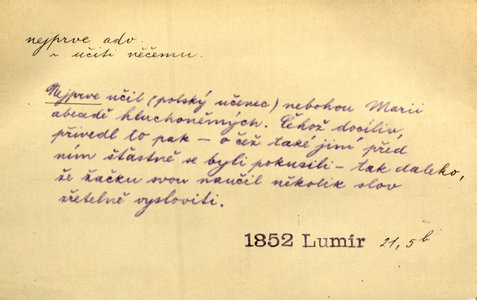 nejprve adv.
~ učiti něčemu.
Nejprve učil (polský učenec) nebohou Marii
abecedě hluchoněmých. Čehož docíliv,
přivedl to pak – o čež také jiní před
ním šťastně se byli pokusili – tak daleko,
že žačku svou naučil několik slov
zřetelně vysloviti.
1852 Lumír 21, 5b